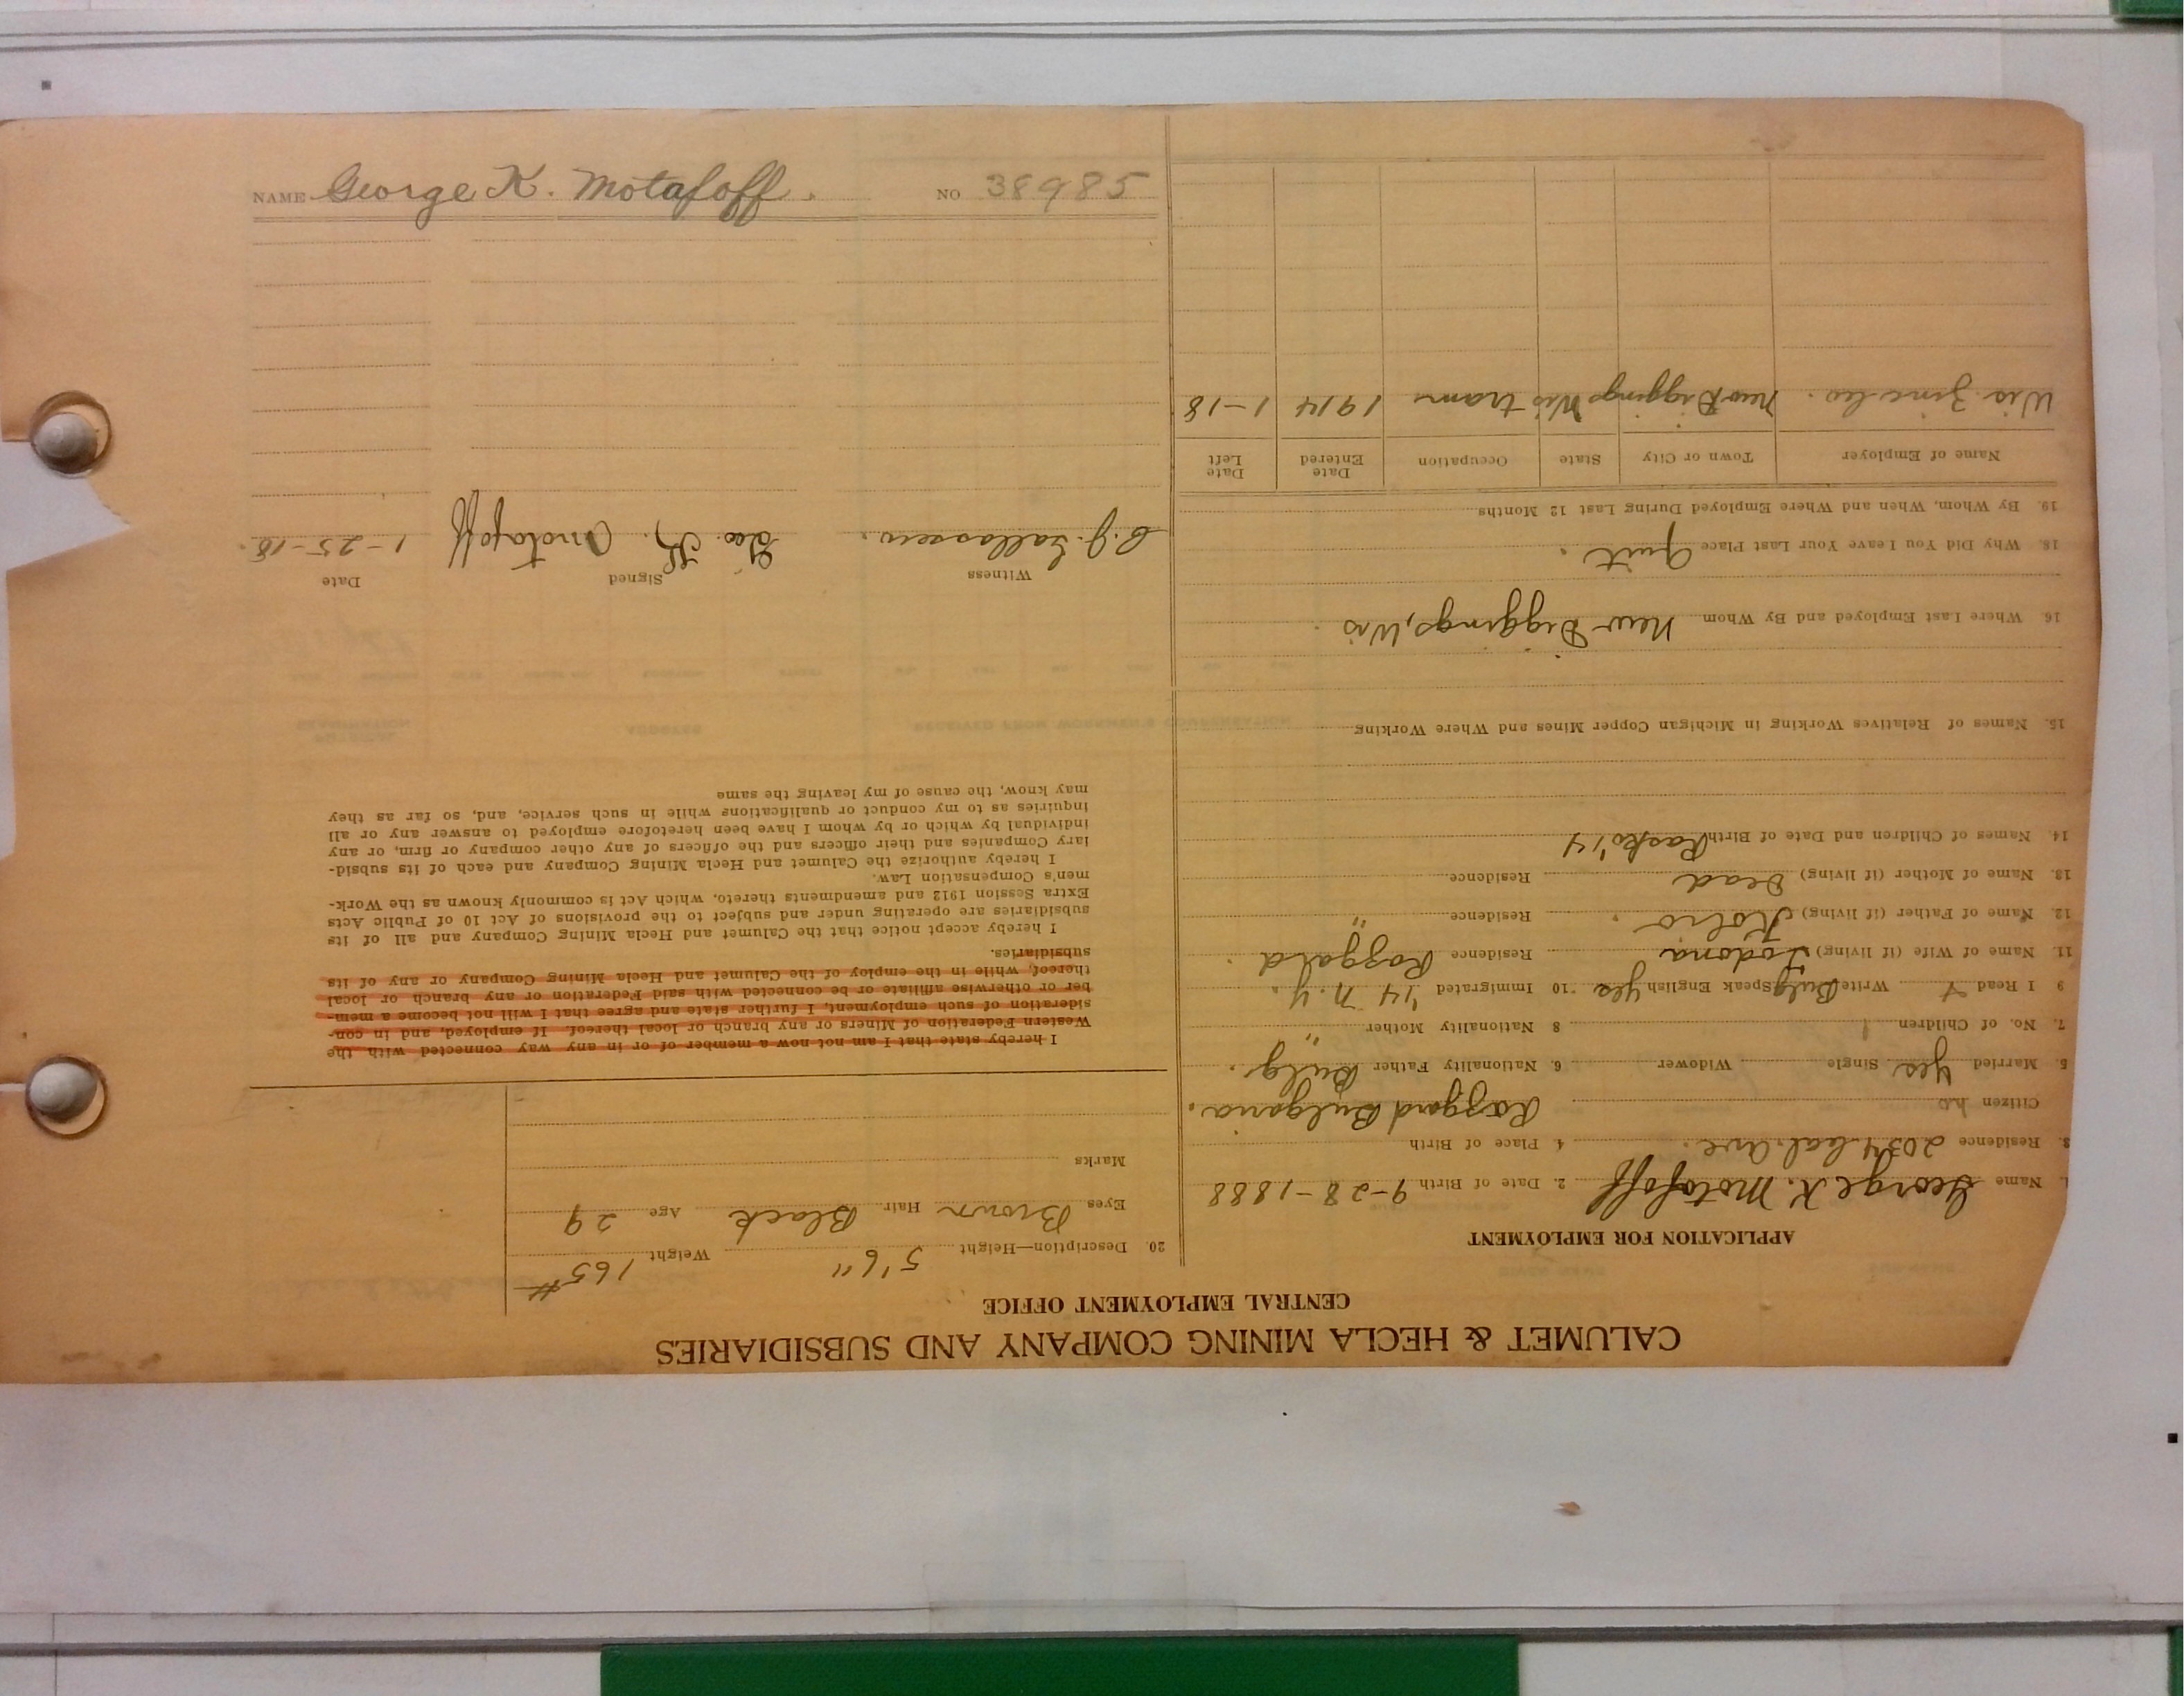 CALUMET & HECLA MINING COMPANY AND SUBSIDIARIES
CENTRAL EMPLOYMENT OFFICE
APPLICATION FOR EMPLOYMENT
1. Name George K. Motafoff 2. Date of Birth 9-28-1888
3. Residence 2034 Cal. Ave. 4 Place of Birth
Citizen no Razgard Bulgaria.
5. Married Yes Single Widower 6. Nationality Father Bulg.
7. No. of Children 1 8 Nationality Mother "
9 I Read Y Write Bulg Speak English Yes 10 Immigrated '14 N.Y.
11. Name of Wife (if living) Todora Residence Razgard.
12. Name of Father (if living) Kolro. Residence "
13. Name of Mother (if living) Dead Residence
14. Names of Children and Date of Birth Rasko '14
15. Names of Relatives Working in Michigan Copper Mines and Where Working
16. Where Last Employed and By Whom New Diggings, Wis.
18. Why Did You Leave Your Last Place Quit.
19. By Whom, When and Where Employed During Last 12 Months
Name of Employer Town or City State Occupation Date Entered Date Left
Wis. Zinc Co. New Diggings Wis tram 1914 1-18
20. Description—Height 5'6" Weight 165#
Eyes Brown Hair Black Age 29
Marks
I hereby state that I am not now a member of or in any way connected with the
Western Federation of Miners or any branch or local thereof. If employed, and in con-
sideration of such employment, I further state and agree that I will not become a mem-
ber or otherwise affiliate or be connected with said Federation or any branch or local
thereof, while in the employ of the Calumet and Hecla Mining Company or any of its
subsidiaries.
I hereby accept notice that the Calumet and Hecla Mining Company and all of its
subsidiaries are operating under and subject to the provisions of Act 10 of Public Acts
Extra Session 1912 and amendments thereto, which Act is commonly known as the Work-
men's Compensation Law.
I hereby authorize the Calumet and Hecla Mining Company and each of its subsid-
iary Companies and their officers and the officers of any other company or firm, or any
individual by which or by whom I have been heretofore employed to answer any or all
inquiries as to my conduct or qualifications while in such service, and, so far as they
may know, the cause of my leaving the same
Witness Signed Date
Geo. K. Motafoff 1-25-18.
NAME George K. Motafoff. NO 38985